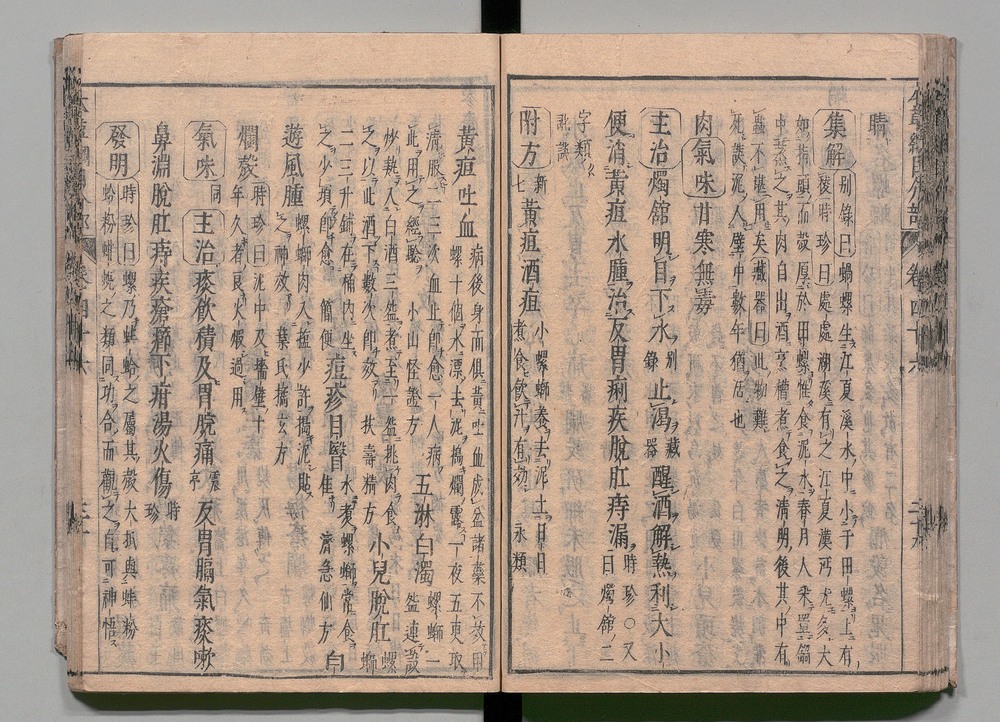 睛
集解 别錄曰蝸螺生江夏溪水中小于田螺上有
稜時珍曰處處湖溪有之江夏漢沔尤多大
如指頭而殼厚於田螺惟食泥水春月人采置鍋
中蒸之其肉自出酒烹糟煮食之清明後其中有
蟲不堪用矣藏器曰此物難
死誤泥入壁中數年猶活也
肉氣味甘寒無毒
主治燭館明目下水别錄止渴藏器醒酒解熱利大小
便消黃疸水腫治反胃痢疾脫肛痔漏時珍○又曰燭館二
字類
附方 新七 黃疸酒疸 小螺螄養去泥土日日
煮食飲汁有効 永類
黃疸吐血 病後身面俱黃吐血成盆諸藥不效用
螺十個水漂去泥搗爛露一夜五更取
清服二三次血止即愈一人病
此用之經驗 小山怪證方 五淋白濁 螺螄一盌連殼
炒熱入白酒三盌煮至一盌挑肉食
之以此酒下數次即效 扶壽精方 小兒脫肛 螺螄
二三升鋪在桶內坐
之少頃即愈 簡便 痘疹目瞖 水煮螺螄常食
佳 濟急仙方 白
遊風腫 螺螄肉入鹽少許搗泥貼
之神效 葉氏摘玄方
爛殼 時珍曰泥中及牆壁上
年久者良火煅過用
氣味 同 主治痰飲積及胃脘痛震亨反胃膈氣痰嗽
鼻淵脫肛痔疾瘡癤下疳湯火傷時珍
發明 時珍曰螺乃蚌蛤之屬其殼大抵與蚌粉
蛤粉蚶蜆之類同功合而觀之自可神悟
卷四十六